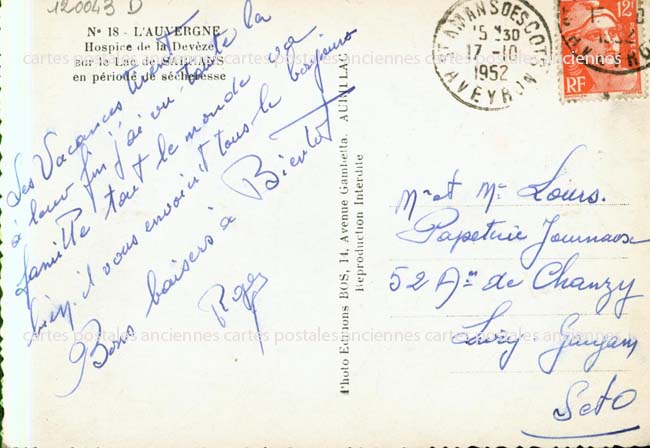 120043 D
N° 18 - L'AUVERGNE
Hospice de la Devèze
sur le Lac de SARRANS
en période de sécheresse
Les Vacances tirent
à leur fin j'ai vu toute la
famille tout le monde va
bien. il vous envoient tous le bonjour
Bons baisers à Bientot
Roger
Photo Editions BOS, 14, Avenue Gambetta, AURILLAC
Reproduction Interdite
St AMANS DES COTS
15 H30
17-10
1952
AVEYRON
12F
RF
Mr et Me Louis.
Papeterie Journaux
52 Av de Chanzy
Livry-Gargan
S et O
cartes postales anciennes cartes postales anciennes cartes postales anciennes
cartes postales anciennes cartes postales anciennes cartes postales anciennes